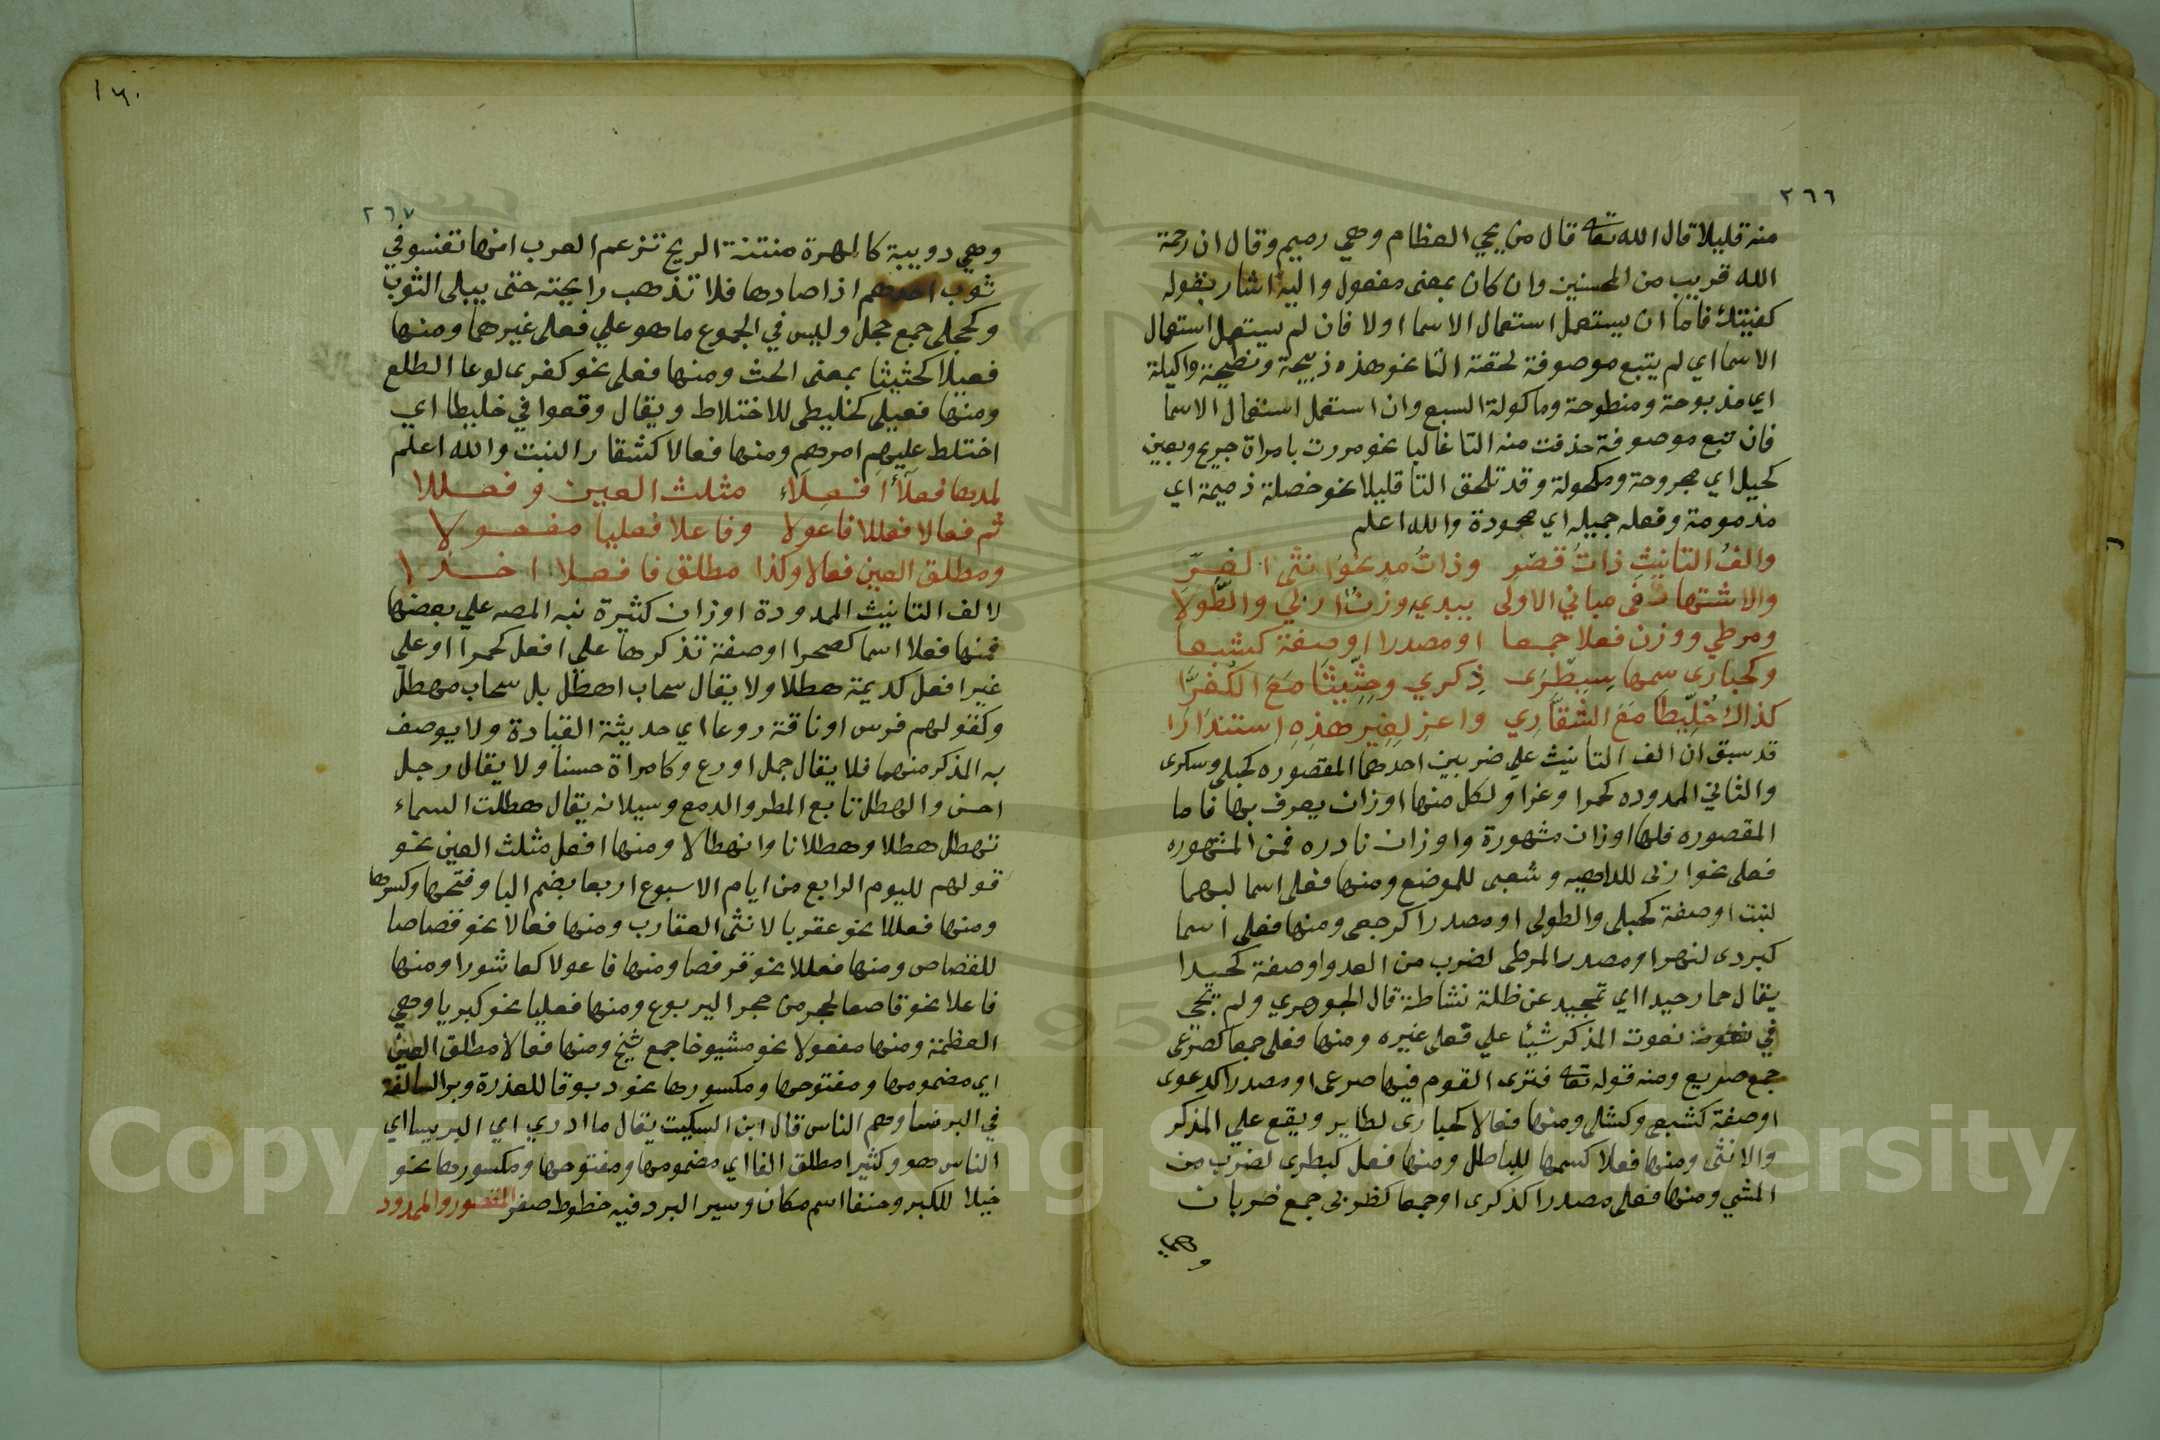 ٢٦٦
منه قليلا قال الله تعه قال من يحي العظام وهي رميم وقال ان رحمة
الله قريب من المحسنين وان كان بمعنى مفعول واليه اشار بقوله
كفتيتك فاما ان يستعمل استعمال الاسما اولا فان لم يستعمل استعمال
الاسما اي لم يتبع موصوفة لحقته التا نحو هذه ذبيحة ونطيحة واكيلة
اي مذبوحة ومنطوحة وماكولة السبع وان استعمل استعمال الاسما
فان تبع موصوفة حذفت منه التا غالبا نحو مررت بامراة جريح وبعين
كحيل اي مجروحة ومكحولة وقد تلحق التا قليلا نحو خصلة ذميمة اي
مذمومة وفعله جميله اي محمودة والله اعلم
والفُ التانيثِ ذاتُ قصْرِ وذاتُ مدٍ نحوُ انثى الغُرِّ
والاشتهار فى مباني الاولى يبديه وزنُ اربي والطُّولا
ومرطي ووزن فعلا جمعا او مصدرا اوصفة كشبعا
وكحبارى سمها سِبَطْرَى ذِكري وحِثِّيثَا مَعَ الكُفرَّا
كذاك خُلَّيطا مَعَ الشُقَّارِي واعز لِغيرِ هذِهِ استندارا
قد سبق ان الف التانيث علي ضربين احدهما المقصوره كحبلى وسكرى
والثاني الممدوده كحمرا وغرا ولكل منها اوزان يعرف بها فاما
المقصوره فلها اوزان مشهورة واوزان نادره فمن المشهوره
فعلى نحو اربى للداهيه وشعبى للموضع ومنها فعلى اسما لبهما
لنبت اوصفة كحبلى والطولى او مصدرا كرجعى ومنها فعلى اسما
كبردى لنهر او مصدر المرطى لضرب من العدو اوصفة كحيدا
يقال حمار حيدا اي تحيد عن ظله نشاطة قال الجوهري ولم يجي
في نعوت المذكر شيئا علي فعلى غيره ومنها فعلى جمعا كصرعى
جمع صريع ومنه قوله تعه فترى القوم فيها صرعى او مصدرا كدعوى
اوصفة كشبعى وكسلى ومنها فعالا كحبارى لطاير ويقع علي المذكر
والانثى ومنها فعلا كسمها للباطل ومنها فعل كبطرى لضرب من
المشي ومنها فعلى مصدرا كذكرى او جمعا كظربى جمع ضربان
وهي
١٦٠
٢٦٧
وهي دويبة كالهرة منتنة الريح تزعم العرب انها تفسو في
ثوب احدهم اذا صادها فلا تذهب رايحته حتى يبلى الثوب
وكحجلى جمع حجل وليس في الجموع ما هو علي فعلى غيرهما ومنها
فعيلا كحثيثا بمعنى الحث ومنها فعلى نحو كفرى لوعا الطلع
ومنها فعيلى كخليطى للاختلاط ويقال وقعوا في خليطا اي
اختلط عليهم امرهم ومنها فعالا كشقار النبت والله اعلم
لمدها فعلاُ افعِلاُء مثلث العين وفعللا
ثم فعالا فعللا فاعولا وفاعلا فعليا مفعولا
ومطلق العين فعالا وكذا مطلق فا فعلا اخذا
لالف التانيث الممدودة اوزان كثيرة نبه المصه علي بعضها
فمنها فعلا اسما كصحرا اوصفة تذكرها علي افعل كحمرا او علي
غير افعل كديمة هطلا ولا يقال سحاب اهطل بل سحاب مهطل
وكقولهم فرس او ناقة روعا اي حديثة القيادة ولا يوصف
به المذكر منهما فلا يقال جمل اورع وكامراة حسنا ولا يقال رجل
احسن والهطل تتابع المطر والدمع وسيلانه يقال هطلت السماء
تهطل هطلا وهطلانا وانهطالا ومنها افعل مثلث العين نحو
قولهم لليوم الرابع من ايام الاسبوع اربعا بضم البا وفتحها وكسرها
ومنها فعللا نحو عقربا لانثى العقارب ومنها فعالا نحو قصاصا
للقصاص ومنها فعللا نحو قرفصا ومنها فاعولا كعاشورا ومنها
فاعلا نحو قاصعا لجحر من جحر اليربوع ومنها فعليا نحو كبريا وهي
العظمة ومنها مفعولا نحو مشيوخا جمع شيخ ومنها فعالا مطلق العين
اي مضمومها ومفتوحها ومكسورها نحو دبوقا للعذرة وبراسا لغة
في البرنسا وهم الناس قال ابن السكيت يقال ما ادري اي البربيسا اي
الناس هو وكثيرا مطلق الفا اي مضمومها ومفتوحها ومكسورها نحو
خيلا للكبر وحنفا اسم مكان وسير البرد فيه خطوط صفر المقصور والممدود
Copyright © King Saud University